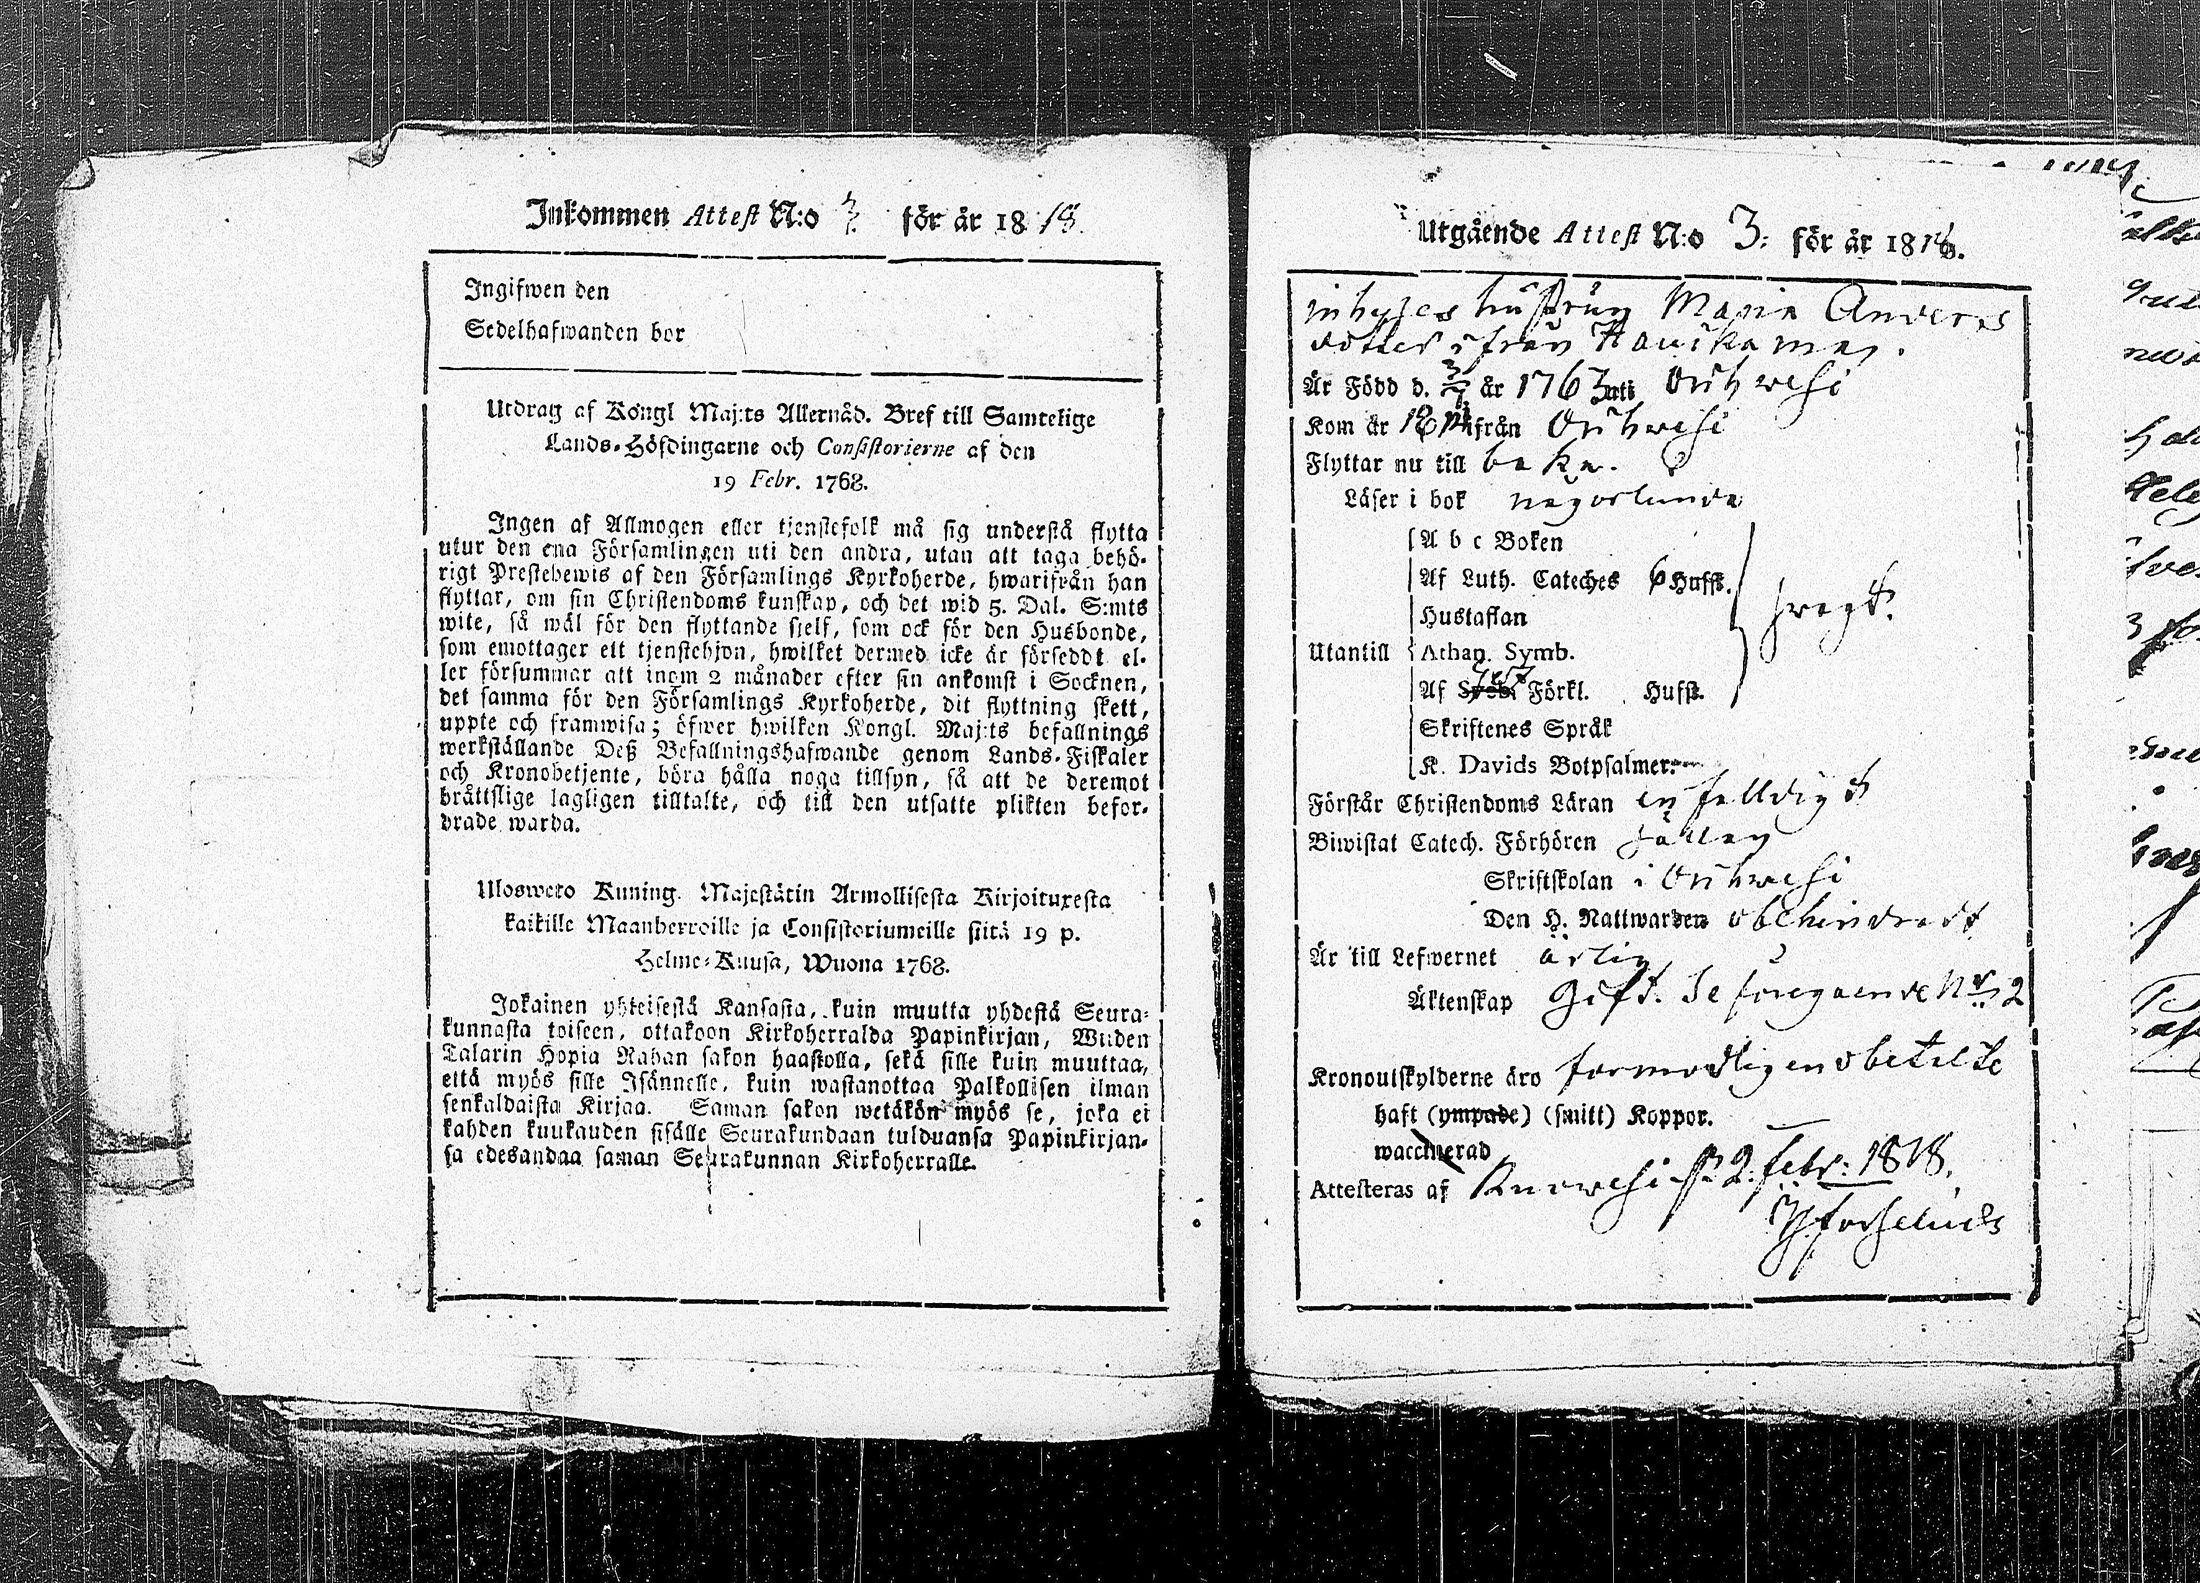 Inkommen Attest N:o för år 1818.
Ingifwen den
Sedelhafwanden bor
Utdrag af Kongl Maj:ts Allernåd. Bref till Samtelige
Lands-Höfdingarne och Consistorierne af den
19 Febr. 1768.
Ingen af Allmogen eller tjenstefolk må sig understå flytta
utur den ena Församlingen uti den andra, utan att taga behö-
rigt Prestebewis af den Församlings Kyrkoherde, hwarifrån han
flyttar, om sin Christendoms kunskap, och det wid 5. Dal. S:mts
wite, så wäl för den flyttande sjelf, som ock för den Husbonde,
som emottager ett tjenstehjon, hwilket dermed icke är försedt el-
ler försummar att inom 2 månader efter sin ankomst i Socknen,
det samma för den Församlings Kyrkoherde, dit flyttning skett,
uppte och framwisa; öfwer hwilken Kongl. Maj:ts befallnings
werkställande Deß Befallningshafwande genom Lands-Fiskaler
och Kronobetjente, böra hålla noga tillsyn, så att de deremot
bråttslige lagligen tilltalte, och till den utsatte plikten befor-
drade warda.
Ulosweto Kuning. Majestätin Armollisesta Kirjoituxesta
kaikille Maanherroille ja Consistoriumeille siitä 19 p.
Helme-Kuusa, Wuona 1768.
Jokainen yhteisestä Kansasta, kuin muutta yhdestä Seura-
kunnasta toiseen, ottakoon Kirkoherralda Papinkirjan, Wiiden
Talarin Hopia Rahan sakon haastolla, sekä sille kuin muuttaa,
että myös sille Isännelle, kuin wastanottaa Palkollisen ilman
senkaldaista Kirjaa. Saman sakon wetäkön myös se, joka ei
kahden kuukauden sisälle Seurakundaan tulduansa Papinkirjan-
sa edesandaa saman Seurakunnan Kirkoherralle.
Utgående Attest N:o 3: för år 1818.
inhyses hustrun Maria Anders
dotter ifrån Haukamäj.
Är Född d. 3/7 år 1763 uti Orihwesi
Kom år ifrån Orihwesi
Flyttar nu till baka.
Läser i bok någorlunda
A b c Boken
Af Luth. Cateches 6 Hufst.
Hustaflan
Utantill Athan. Symb.
Af Förkl. Hufst.
Skriftenes Språk
K. Davids Botpsalmer.
Förstår Christendoms Läran enfalldigt
Biwistat Catech. Förhören sällan
Skriftskolan i Orihwesi
Den H. Nattwarden obehindradt
Är till Lefwernet ärlig
Äktenskap Gift. Se föregaende Nr 2
Kronoutskylderne äro förmodligen obetalte
haft (ympade) (smitt) Koppor.
waccinerad
Attesteras af Ruowesi d. 2. febr: 1818.
Forselius